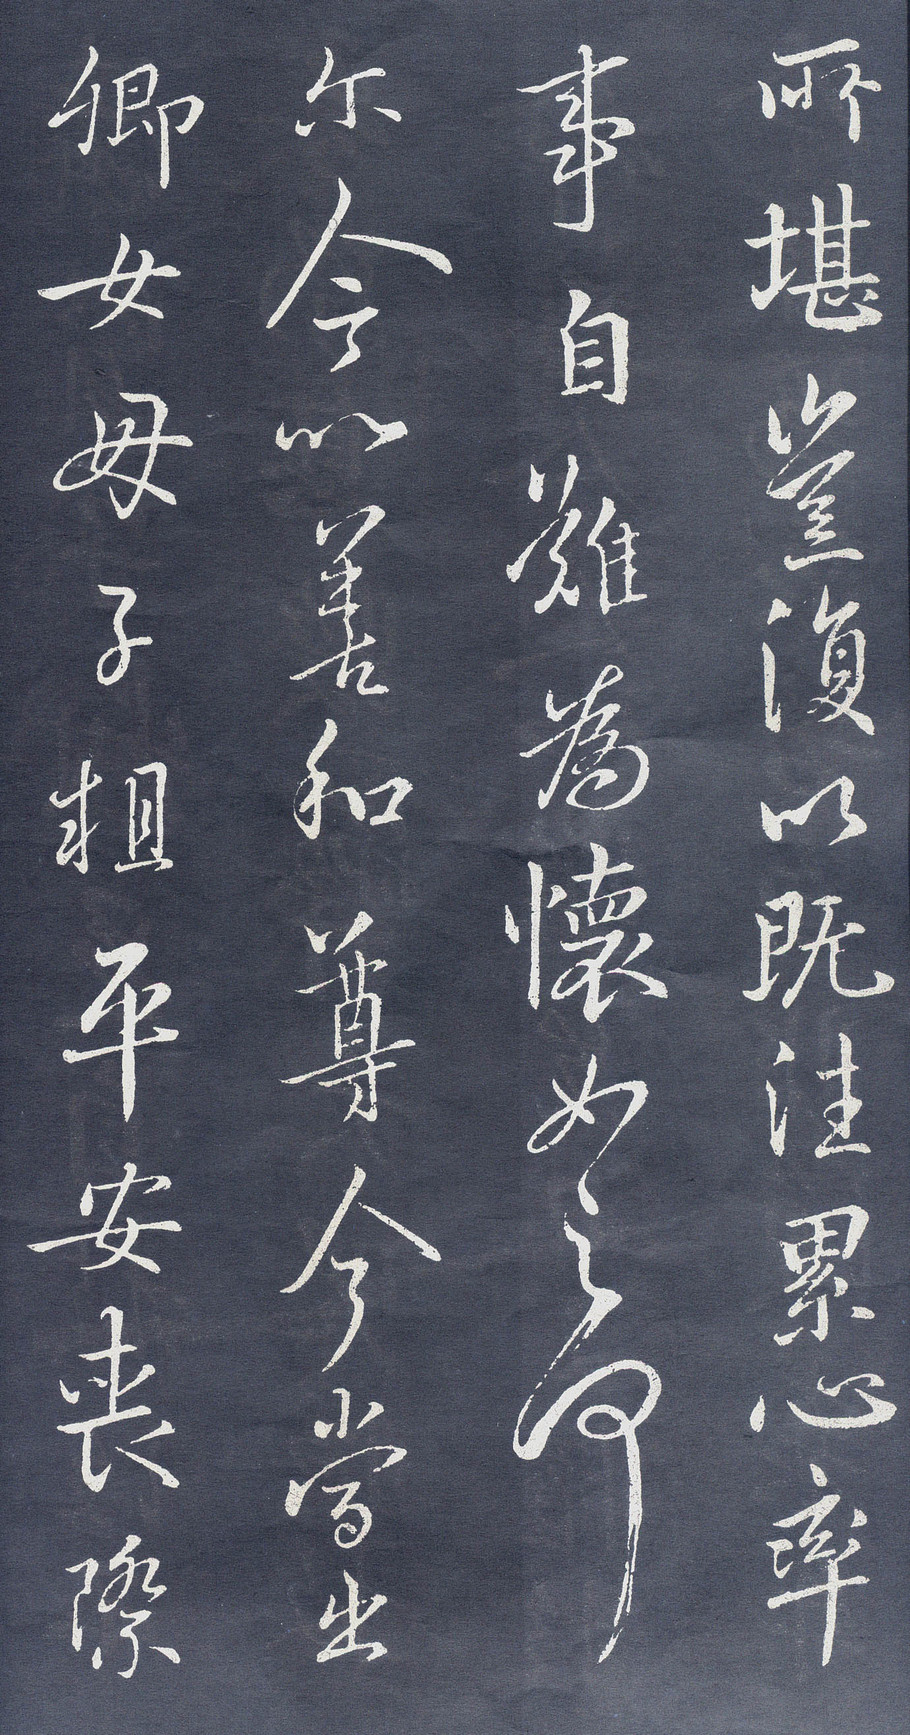 所堪豈復以既往累心率
事自難為懷如之何
尓今以善和尊今當出
卿女母子粗平安喪際